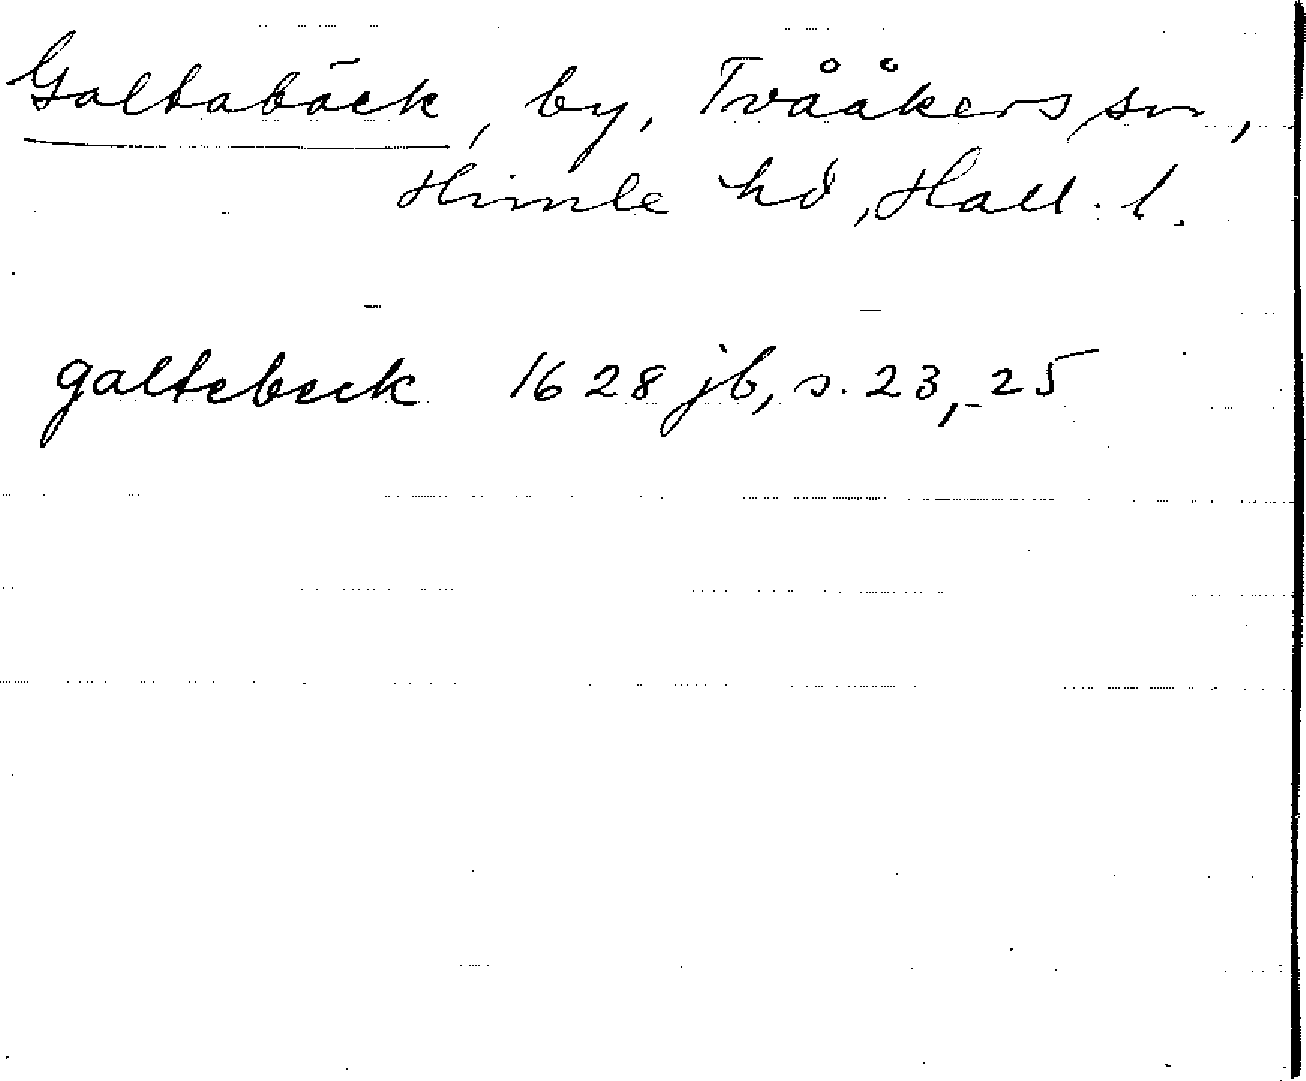 Galtabäck, by, Tvååkers sn,
Himle hd, Hall. l.
galtebeck 1628 jb, s. 23, 25